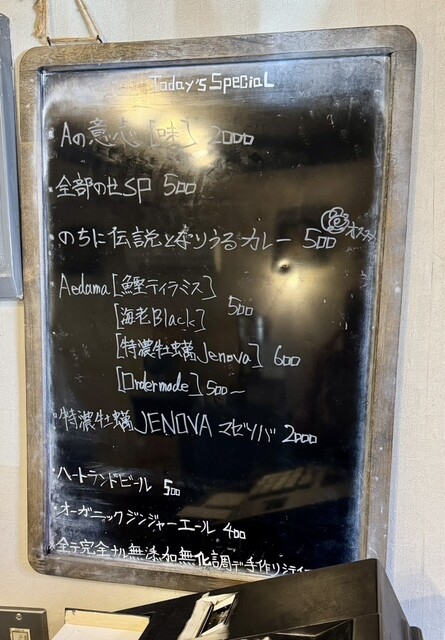 Today's Special
・Aの意志[味] 2000
・全部のせSP 500
・のちに伝説となりうるカレー 500 オススメ
・Aedama[鰹ティラミス]
[海老Black] 500
[特濃牡蠣Jenova] 600
[Ordermade] 500〜
・特濃牡蠣JENOVAマゼソバ 2000
・ハートランドビール 500
・オーガニックジンジャーエール 400
※全テ完全ナル無添加無化調デ手作リシテイ